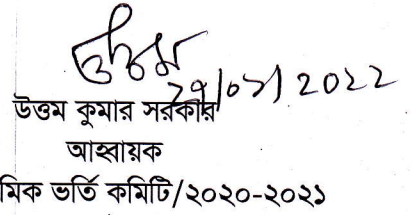 উত্তম
২৭/০১/2022
উত্তম কুমার সরকার
আহ্বায়ক
মিক ভর্তি কমিটি/২০২০-২০২১